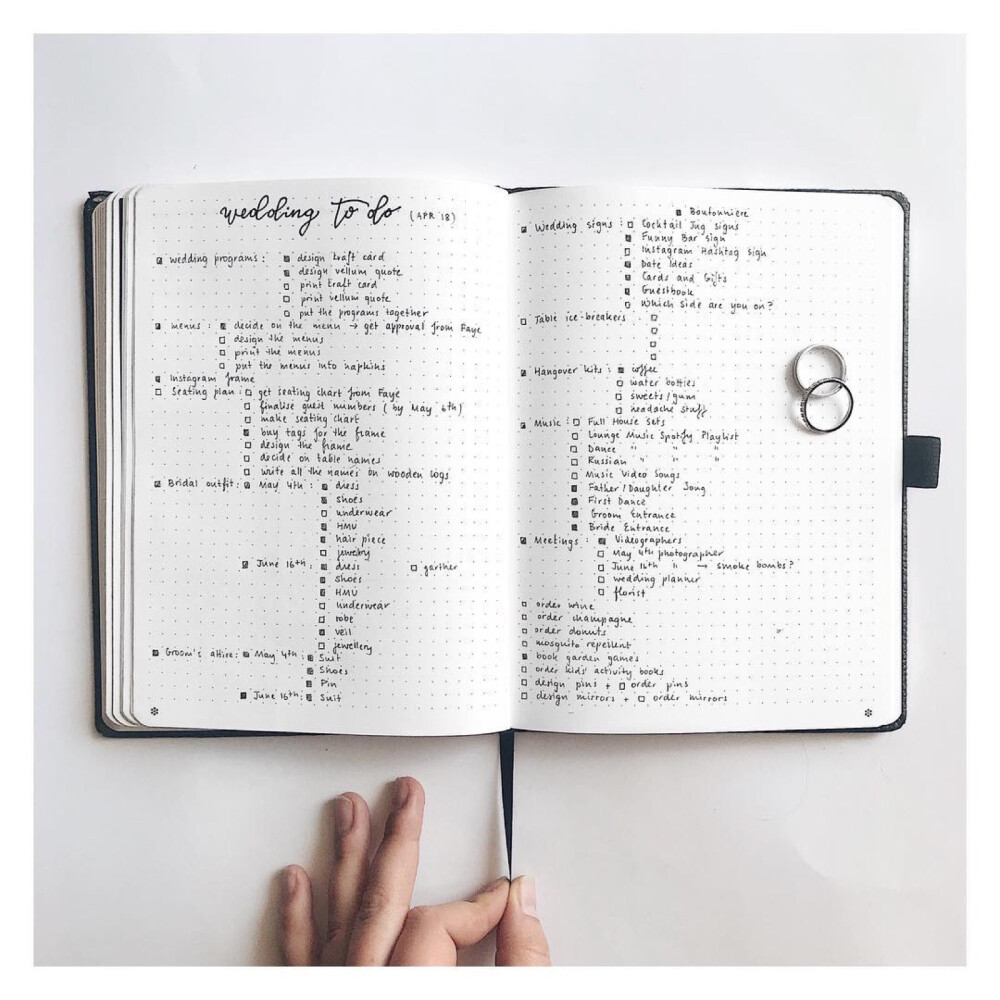 wedding to do (APR '18)
wedding programs: design kraft card
design vellum quote
print kraft card
print vellum quote
put the programs together
menus: decide on the menu → get approval from Faye
design the menus
print the menus
put the menus into napkins
Instagram frame
Seating plan: get seating chart from Faye
finalise guest numbers (by May 6th)
make seating chart
buy tags for the frame
design the frame
decide on table names
write all the names on wooden logs
Bridal outfit: May 4th: dress
shoes
underwear
HMU
hair piece
jewelry
June 16th: dress garther
shoes
HMU
underwear
robe
veil
jewellery
Groom's attire: May 4th: Suit
Shoes
Pin
June 16th: Suit
Boutonniere
Wedding signs: Cocktail Jug signs
Funny Bar sign
Instagram Hashtag sign
Date Ideas
Cards and Gifts
Guestbook
Which side are you on?
Table ice-breakers:
Hangover kits: coffee
water bottles
sweets/gum
headache stuff
Music: Full House Sets
Lounge Music Spotify Playlist
Dance " " "
Russian " " "
Music Video Songs
Father/Daughter Song
First Dance
Groom Entrance
Bride Entrance
Meetings: Videographers
May 4th photographer
June 16th " → smoke bombs?
wedding planner
florist
order wine
order champagne
order donuts
mosquito repellent
book garden games
order kids' activity books
design pins + order pins
design mirrors + order mirrors